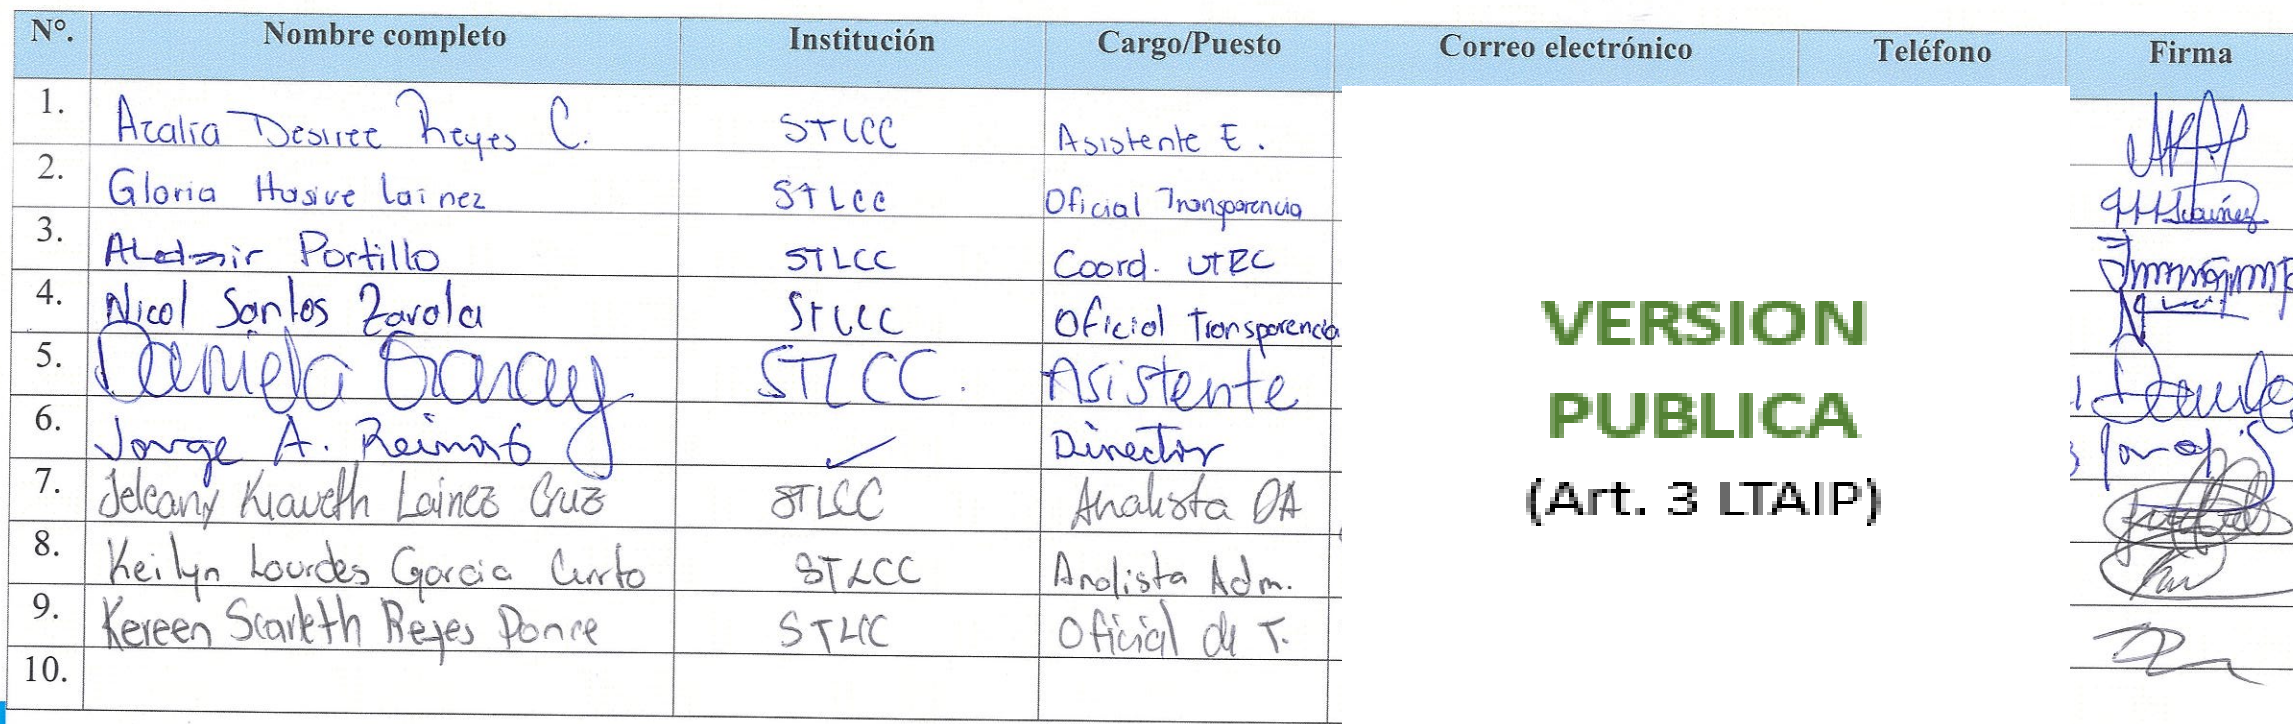 N°. Nombre completo Institución Cargo/Puesto Correo electrónico Teléfono Firma
1. Azalia Desiree Reyes C. STLCC Asistente E.
2. Gloria Lainez STLCC Oficial Transparencia
3. Portillo STLCC Coord. UTRC
4. Nicol Santos Zavala STLCC Oficial Transparencia
5. Daniela Garay STLCC. Asistente
6. Jorge A. ✓ Director
7. Lainez Cruz STLCC Analista DA
8. Keilyn Lourdes Garcia STLCC Analista Adm.
9. Kereen Scarleth Reyes Ponce STLCC Oficial de T.
10.
VERSION
PUBLICA
(Art. 3 LTAIP)